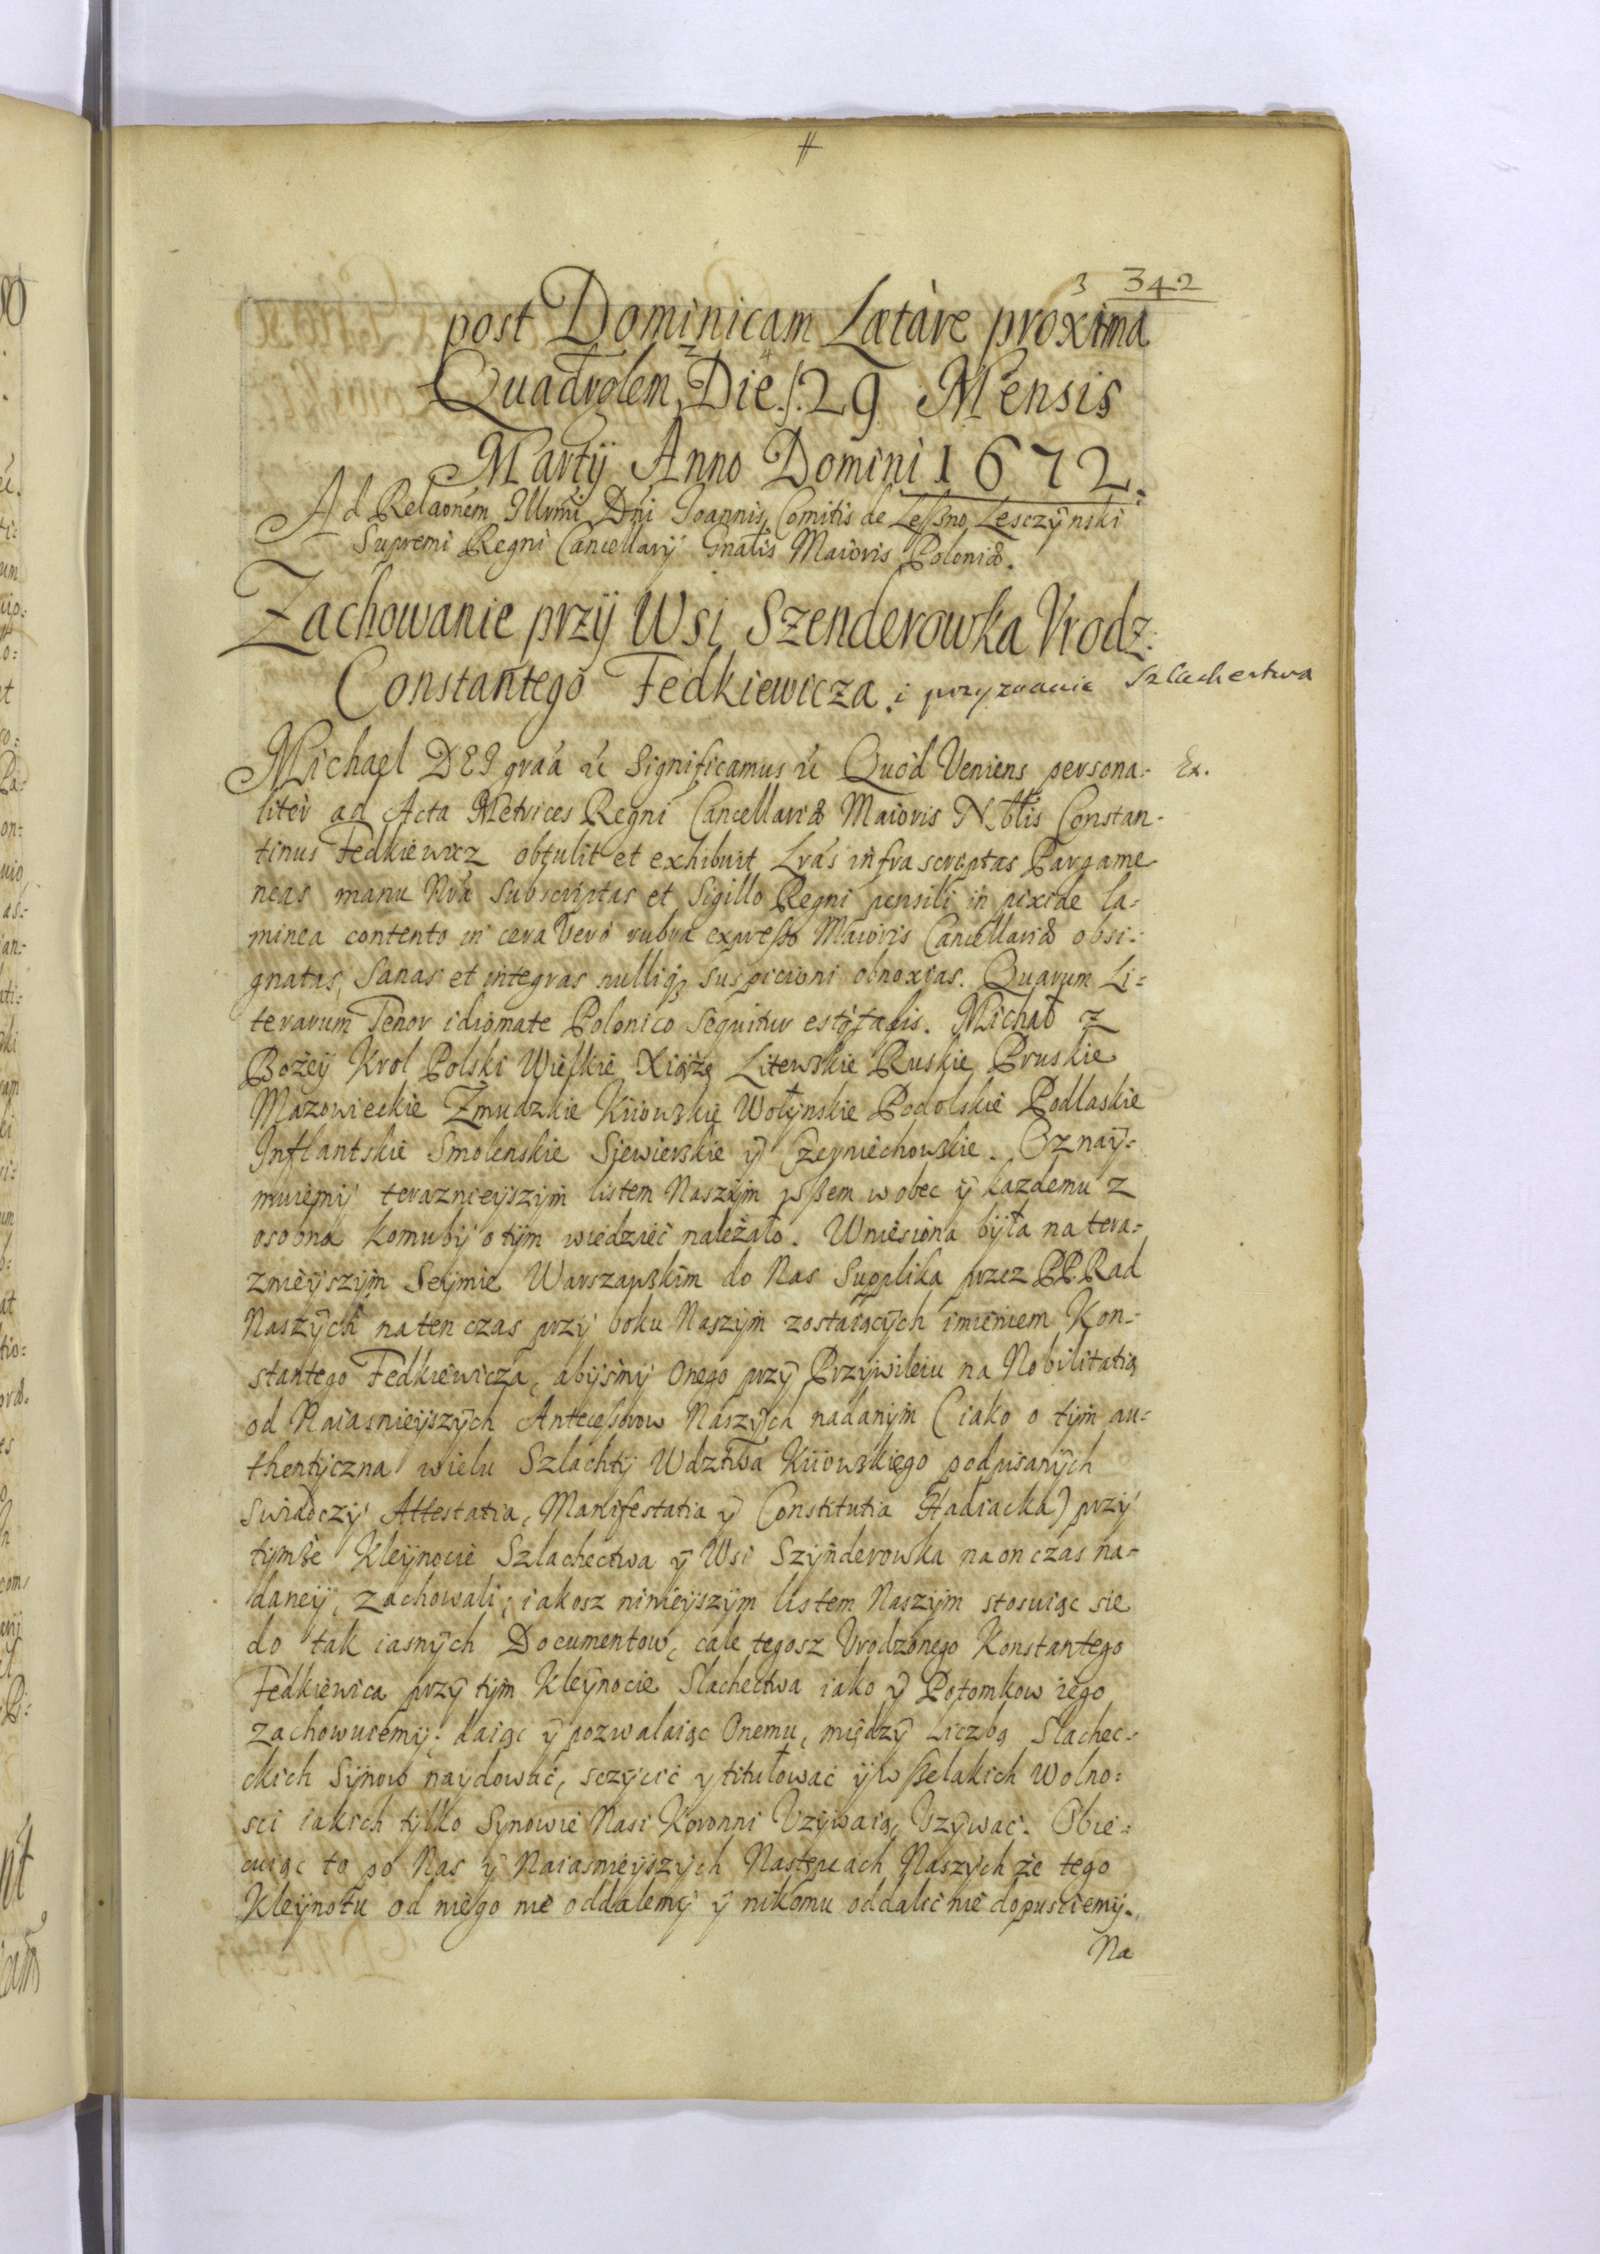 3 342
post Dominicam Lætare proxima
Quadrglem, Die 29 Mensis
Martÿ Anno Domini 1672.
Ad Relaonem Illrmi Dni Joannis Comitis de Leßno Lesczÿnski
Supremi Regni Cancellarÿ Gnalis Maioris Poloniæ.
Zachowanie przÿ Wsi Szenderowka Vrodz:
Constantego Fedkiewicza. i przyznanie Szlachectwa
Michael DEI graã ũ Significamus ũ Quod Veniens persona- Ex.
liter ad Acta Metrices Regni Cancellariæ Maioris Nblis Constan-
tinus Fedkiewicz obtulit et exhibuit Lras infrascriptas Pargame
neas manu Nra Subscriptas et Sigillo Regni pensili in pixide la-
minea contento in cera Vero rubra expresso Maioris Cancellariæ obsi-
gnatas, Sanas et integras nulliq3 suspicioni obnoxias. Quarum Li-
terarum Tenor idiomate Polonico sequitur estq talis. Michał z
Bożeÿ Krol Polski Wielkie Xiążę Litewskie Ruskie Pruskie
Mazowieckie Żmudzkie Kiiowskie Wołÿnskie Podolskie Podlaskie
Inflantskie Smolenskie Siewierskie ÿ Czerniechowskie. Oznaÿ-
muiemÿ teraznieÿszÿm listem Naszÿm wßem wobec ÿ kazdemu z
osobna komubÿ o tÿm wiedzieć należało. Wniesiona bÿła na tera-
znieÿszÿm Seÿmie Warszawskim do Nas Supplika przez PP. Rad
Naszÿch na ten czas przÿ boku Naszÿm zostaiącÿch imieniem Kon-
stantego Fedkiewicza, abÿsmÿ onego przÿ Przÿwileiu na Nobilitatią
od Naiasnieÿszÿch Antecessorow Naszÿch nadanÿm (iako o tÿm au-
thentÿczna wielu Szlachtÿ Wdztwa Kiiowskiego podpisanÿch
swiadczÿ Attestatia, Manifestatia ÿ Constitutia Hadiacka) przÿ
tÿmże Kleÿnocie Szlachectwa ÿ Wsi Szÿnderowka na on czas na-
daneÿ, zachowali; iakosz ninieÿszÿm listem Naszÿm stosuiąc sie
do tak iasnÿch Documentow, cale tegosz Vrodzonego Konstantego
Fedkiewica przÿ tÿm Kleÿnocie Slachectwa iako ÿ Potomkow iego
zachowuiemÿ; daiąc ÿ pozwalaiąc Onemu, międzÿ Liczbą Slachec-
ckich Sÿnow naydować, sczÿcić y titułować ÿ wßelakich Wolno-
sci iakich tÿlko Sÿnowie Nasi Koronni Vzÿwaią, Vzÿwać. Obie-
cuiąc to po Nas ÿ Naiasnieÿszÿch Następcach Naszÿch że tego
Kleÿnotu od niego nie oddalemÿ ÿ nikomu oddalić nie dopusciemÿ.
Na